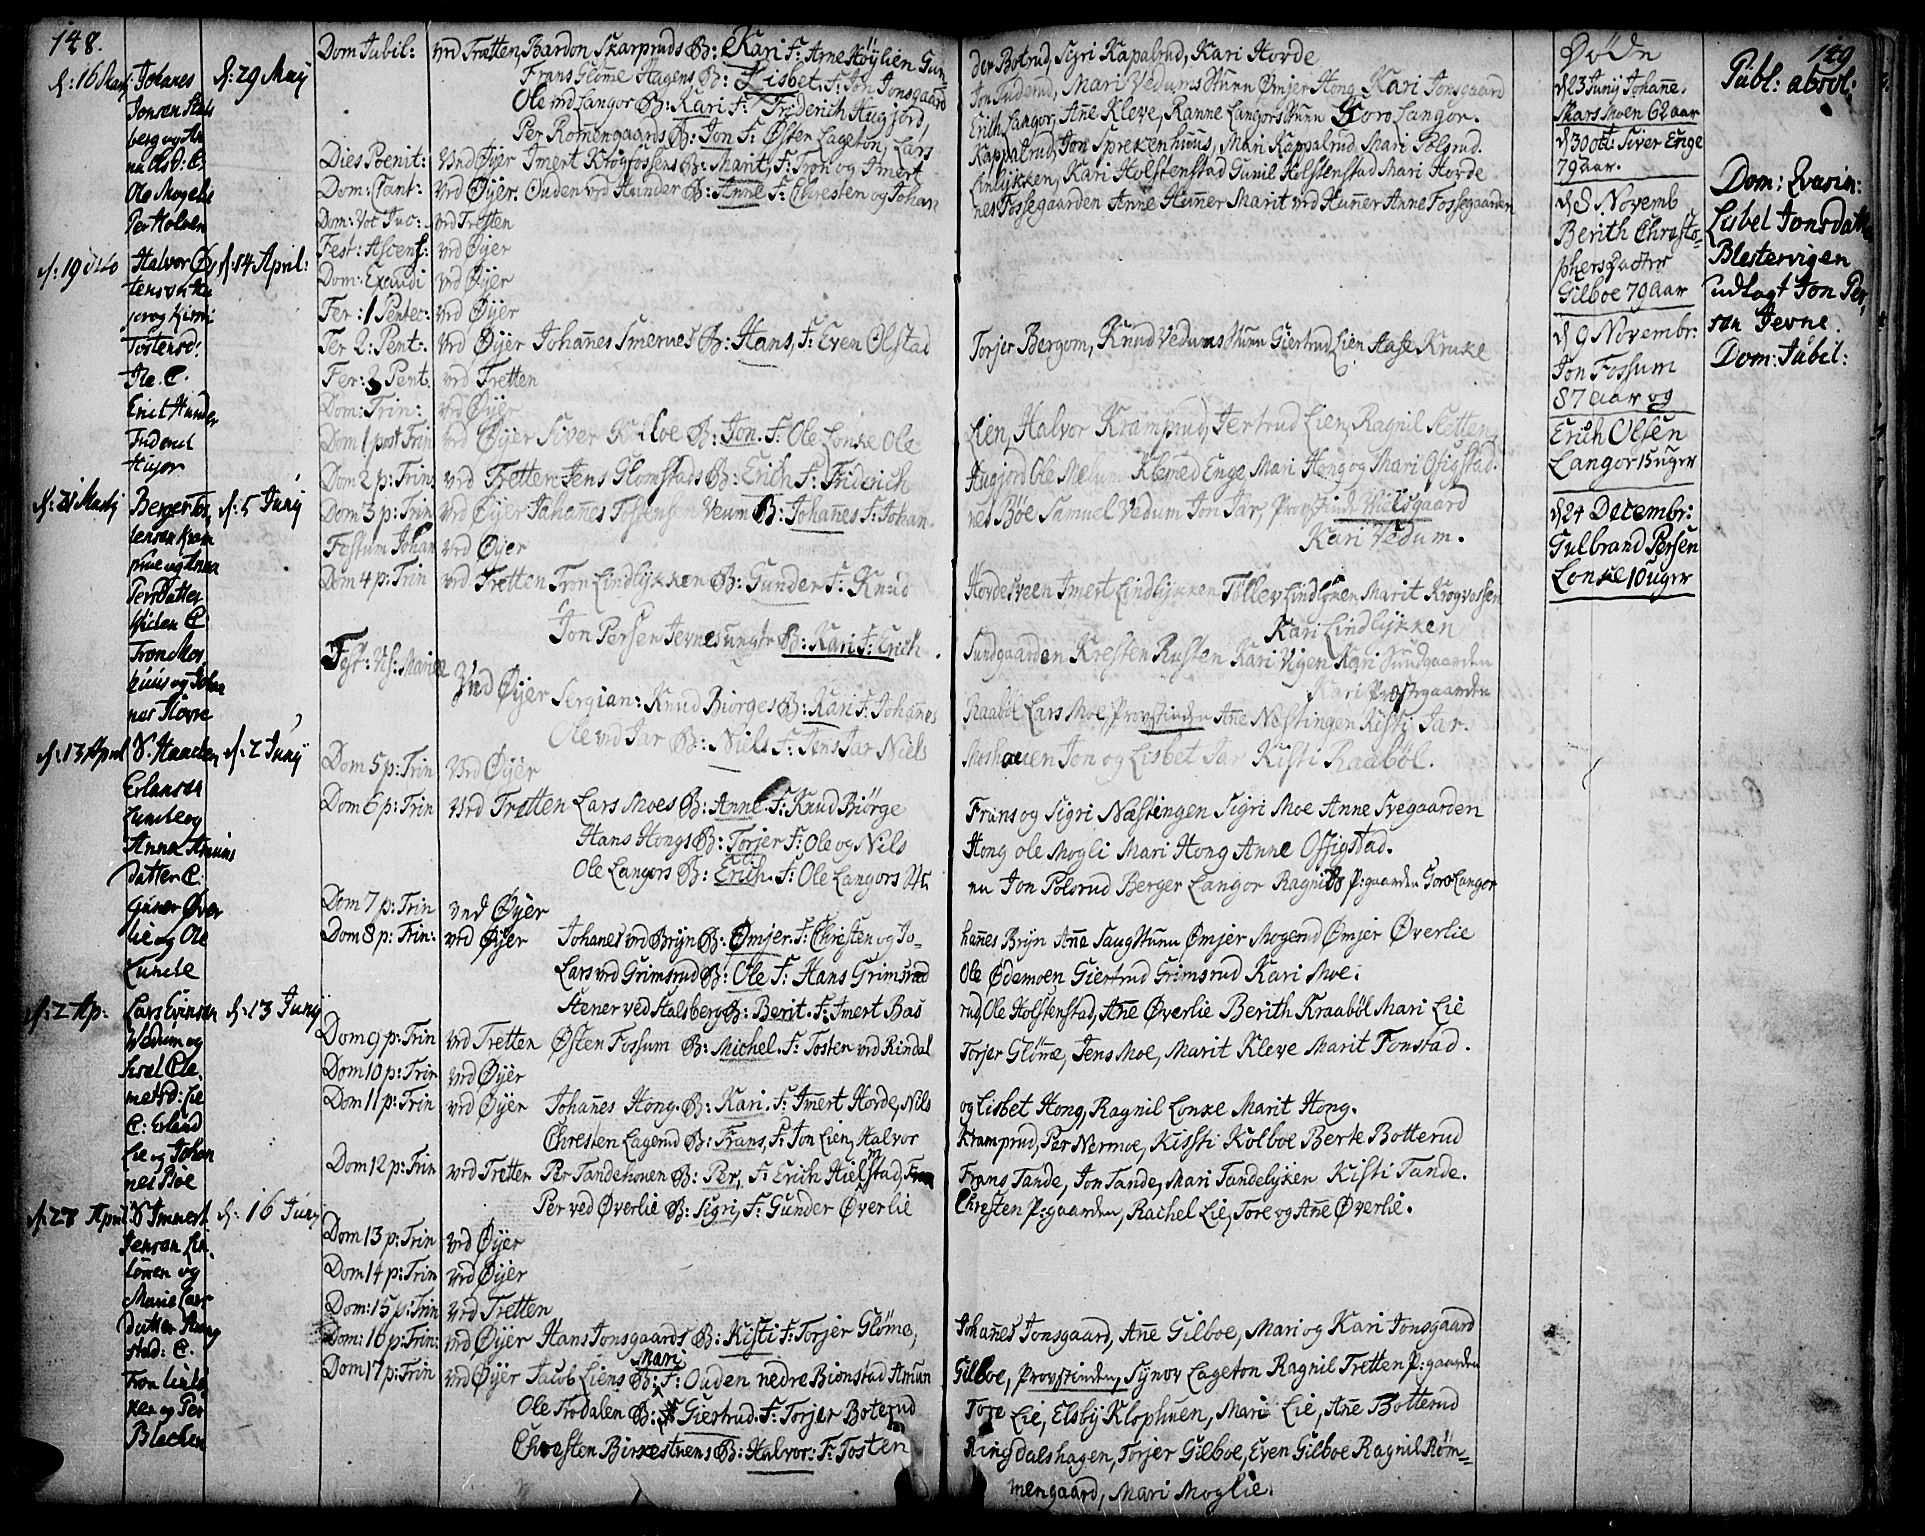 148.
d: 16 Martj Johanes d: 29 Maij
Jonsen Stals
berg og An
na Ols D: C.
Ole Mogelie
Per Holsen
d: 19 dito Halvor Øs d: 14 April:
Tostensd:
Ole. C.
Erich Hunder
Fuderud
d: 21 Martj Berger d: 5 Junij
lensen Kram
prue og Anna
Persdatter
C.
Tron Mos
huus og Johan
nes Flovre
d: 13 April S. Haachen d: 2 Junij
Erlansen
Lunde og
Anna Amuns
datter C:
Gunder Øver
lie og Ole
Lunde
d: 2 Ap: Lars Evensen d: 13 Junij
Wedum og
metsd: Lie
C: Erland
Lie og Johan
nes Bøe
d: 27 April S. Immert d: 16 Junij
Jensen Lin
lønen og
Marie Lars
datter Ring
stad: C.
Tron Linlø
ken og Per
Blacken
Dom Jubil: vid Tretten, Bardon Skarpruds B: Kari F: Arne Høÿlien Gun
Frans Glome Hagens B: Lisbet. F: Jon Jonsgaard
Ole vid Langor B: Kari F: Friderich Haugjord,
Per Romengaards B: Jon F: Østen Lageton, Lars
Dies Poenit: Vid Øÿer Iment Krogfossens B: Marit, F: Tron og Imert
Dom: Cant: vid Øÿer. Ouden vid Hunder B: Anne F: Chresten og Johan
Dom: Voc Juc: vid Tretten
Fest: Ascens: vid Øÿer
Dom: Exaudi vid Øÿer
Fer: 1 Pentec: vid Øÿer
Fer 2: Pent: vid Øÿer Johañes Smernes B: Hans, F: Even Ølstad
Fer: 3 Pent. vid Tretten
Dom: Trin: vid Øÿer
Dom 1 post Trin vid Øÿer Siver Kolloe B: Jon. F: Ole Lonke Ole
Dom 2 p: Trin: vid Tretten Jens Glomstads B: Erich F: Friderich
Dom 3 p: Trin vid Øÿer Johañes Tostensen Veum B: Johañes F: Johan
Festum Johan vid Øÿer
Dom 4 p: Trin vid Tretten Tron Lindlykken B: Gunder F: Knud
Jon Persen Jevnes ungte B: Kari F: Erich
Fest: Vis: Mariæ Vid Øÿer Sergian: Knud Biorges B: Kari F: Johañes
Ole vid Jar B: Niels F: Jens Jar Niels
Dom 5 p: Trin Vid Øÿer
Dom 6 p: Trin Vid Tretten Lars Moes B: Anne F: Knud Biørge
Hans Hongs B: Torjer F: Ole og Nils
Ole Langors B: Erich. F: Ole Langors
Dom 7 p: Trin vid Øÿer
Dom 8 p: Trin: vid Øÿer Johanes vid Brÿn B: Ømjer. F: Chresten og Jo-
Lars vid Grimsrud B: Ole F: Hans Grimsrud
Stener ved Stalsberg B: Berit. F: Imert Bas
Dom 9 p: Trin vid Tretten Østen Fossum B: Michel. F: Tosten vid Rindal
Dom 10 p: Trin vid Øÿer
Dom 11 p: Trin vid Øÿer Johañes Hong. B: Kari. F: Imert Horde, Nils
Chresten Lagerud B: Frans, F: Jon Lien, Halvor
Dom 12 p: Trin vid Tretten Per Tandehouen B: Per, F: Erich Hielmstad,
Per ved Øverlie B: Sigri, F: Gunder Øverlie
Dom 13 p: Trin vid Øÿer
Dom 14 p: Trin vid Øÿer
Dom: 15 p: Trin vid Tretten
Dom: 16 p: Trin: vid Øÿer Hans Jonsgaards B: Kisti F: Torjer Gløme,
Dom 17 p: Trin vid Øÿer Jacob Liens B: Mari F: Ouden nedre Biønstad Amun
Ole Trodalen B: Giertrud. F: Torjer Boterud
Chresten Birkestuens B: Halvor: F: Tosten
der Botrud, Sigri Kapalrud, Kari Horde
Jon Fuderud, Mari Vedums Stuen Ømjer Hong Kari Jonsgaard
Erich Langor, Añe Kleve, Ranne Langors Stuen Goro Langor.
Kappalrud, Jon Sprekenhuus, Mari Kappalrud Mari Polsrud.
Linlykken, Kari Holstenstad Gunil Holstenstad Mari Horde
nes Fossegaarden Anne Huñer Marit vid Huñer Anne Fossegaarden
Torjer Bergom, Knud Vedums Stuen Giertrud Lien Aase Kruke
Lien, Halvor Kramprud, Jertrud Lien, Ragnil Sletten
Augjord Ole Melum Kleved Enge, Mari Hong og Mari Ofigstad.
nes Bøe Samuel Vedum Jon Jar, Provstinde Nielsgaard
Kari Vedum.
Hordesveen Imert Lindlykken Tollev Lindlyken Marit Krogvossen
Kari Lindlykken
Sundgaarden Kresten Rusten Kari Vigen Kari Sundgaarden
Kari Præstegaarden
Raabøl Lars Moe, Provstinden Ane Nestingen Kisti Jar.
Moshauen Jon og Lisbet Jar Kisti Raabøl.
Frans og Sigri Næstingen Sigri Moe Anne Svegaarden
Hong ole Mogli Mari Hong Anne Offigstad.
nu Jon Polsrud Berger Langor Ragnild P: gaarden Goro Langor
hañes Brÿn Añe Haugstuen Ømjer Mogend Ømjer Øverlie
Ole Ødemoen Giertrud Grimsrud Kari Moe.
rud, Ole Holstenstad, Añe Øverlie Berith Kraabøl Mari Lie
Torjer Gløme, Jens Moe, Marit Kleve Marit Fonstad.
og Lisbet Hong, Ragnil Lonke Marit Hong.
Kramprud, Per Nermoe, Kissti Kolboe Berte Botterud
Frans Tande, Jon Tande, Mari Tandelyken Kisti Tande.
Chresten P: gaarden, Rachel Lie, Tore og Añe Øverlie.
Johañes Jonsgaard, Añe Gilboe, Mari og Kari Jonsgaard
Gilboe, Provstinden, Synov Lageton Ragnil Tretten P: gaarden
Tore Lie, Elsby Klophuen, Mari Lie, Añe Botterud
Ringdalshagen, Torjer Gilboe, Even Gilboe Ragnil Røm-
mengaard, Mari Moglie.
Døde
d 23 Junÿ Johañe.
Skars Moen 62 aar
d 30 oct: Siver Enge
79 aar.
d 8. Novemb
Berith Christo-
phers Datter
Gilboe 79 aar
d 9 Novembr:
Jon Fossum
87 aar og
Erich Olsen
Langor 15 uger
d 24 Decembr:
Gulbrand Persen
Lonke 10 uger
149
Publ: absol:
Dom: Qvasim:
Lisbet Jonsdatter
Blestervigen
udlagt Jon Per
sen Jevne.
Dom: Jubil: